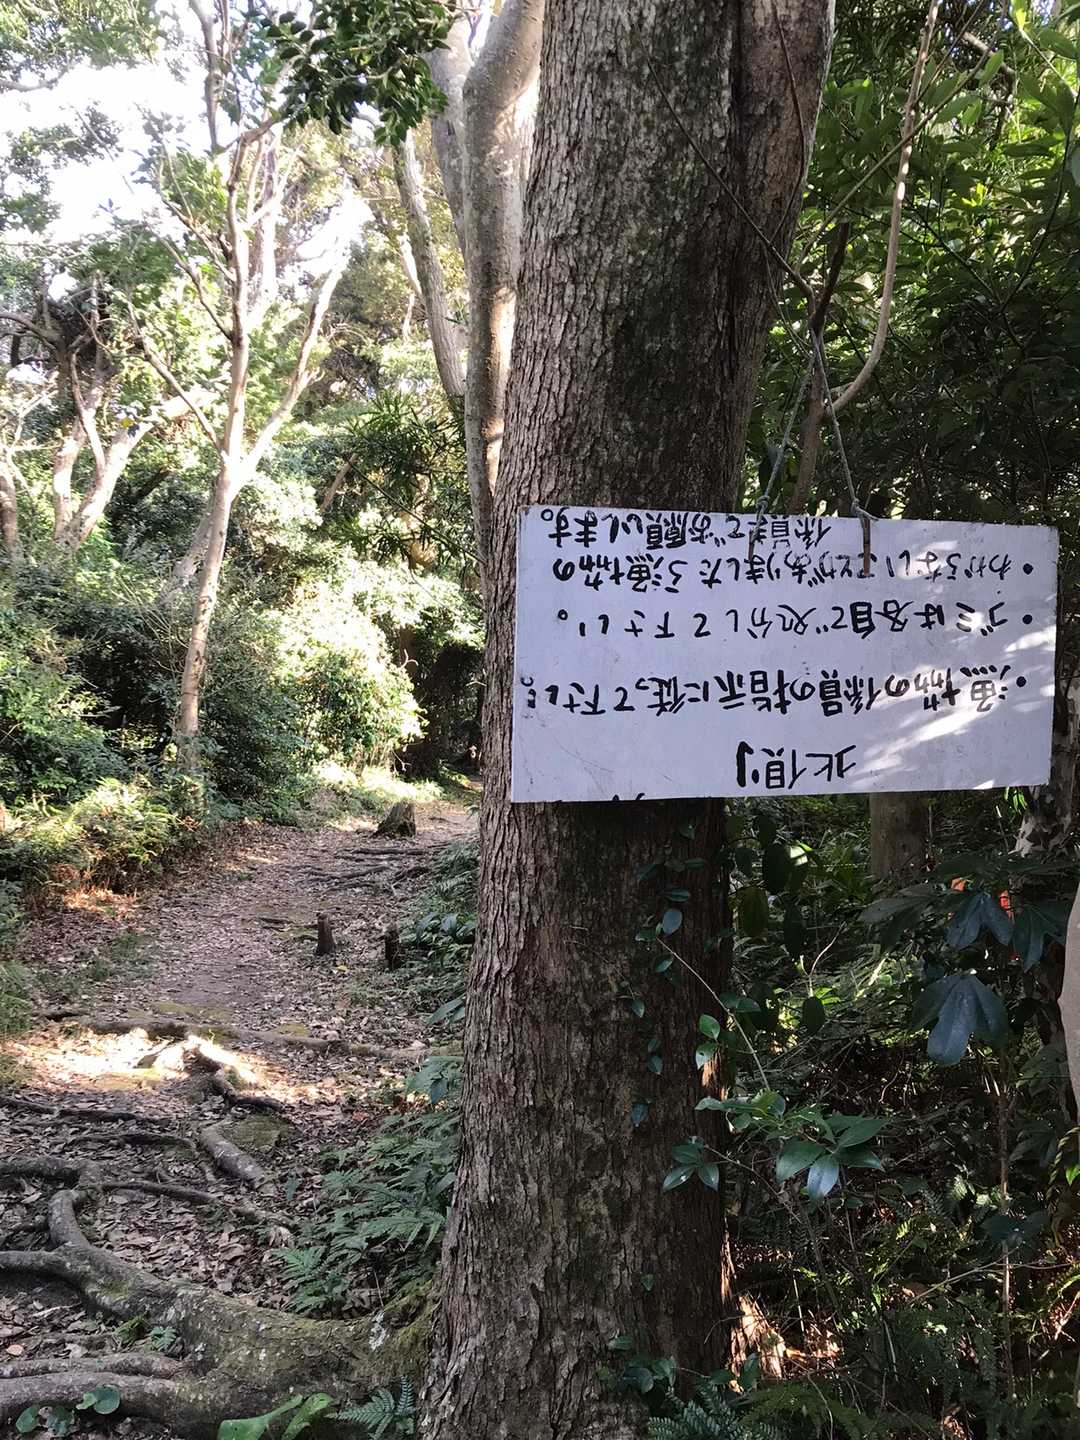 北側
・漁協の係員の指示に従って下さい。
・ゴミは各自で処分して下さい。
・わからないことがありましたら漁協の
係員までお願いします。